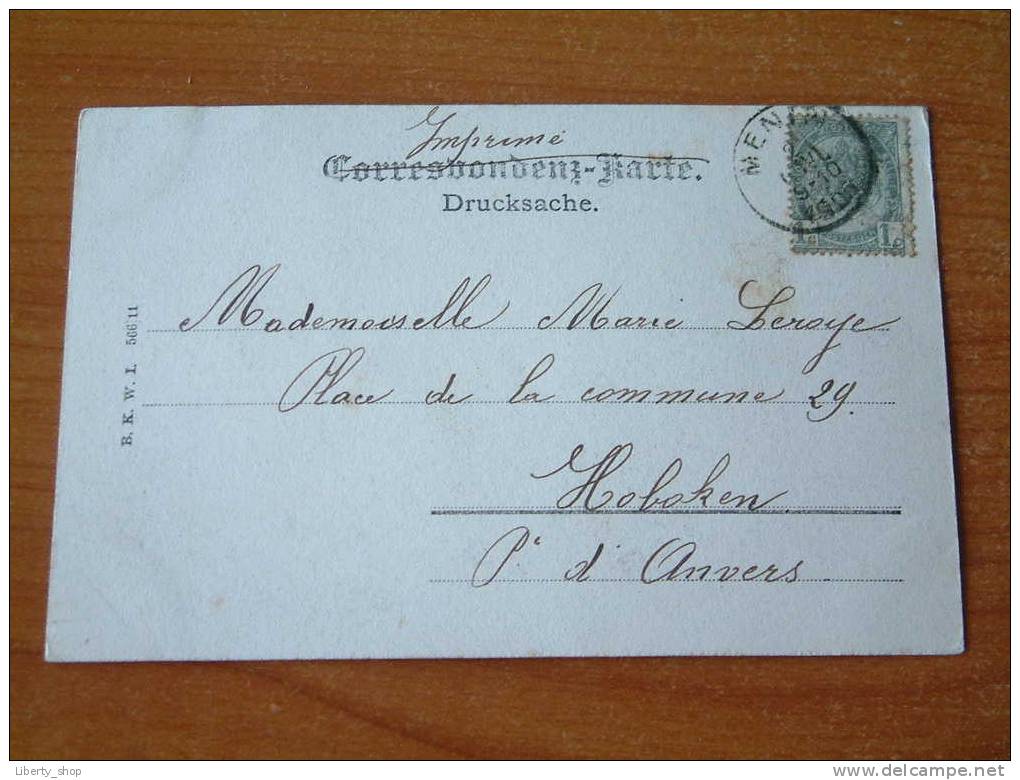 Imprimé
Correspondenz-Karte.
Drucksache.
B. K. W. I. 566/11
Mademoiselle Marie Leroye
Place de la commune 29.
Hoboken
P. d' Anvers
Liberty_shop
www.delcampe.net